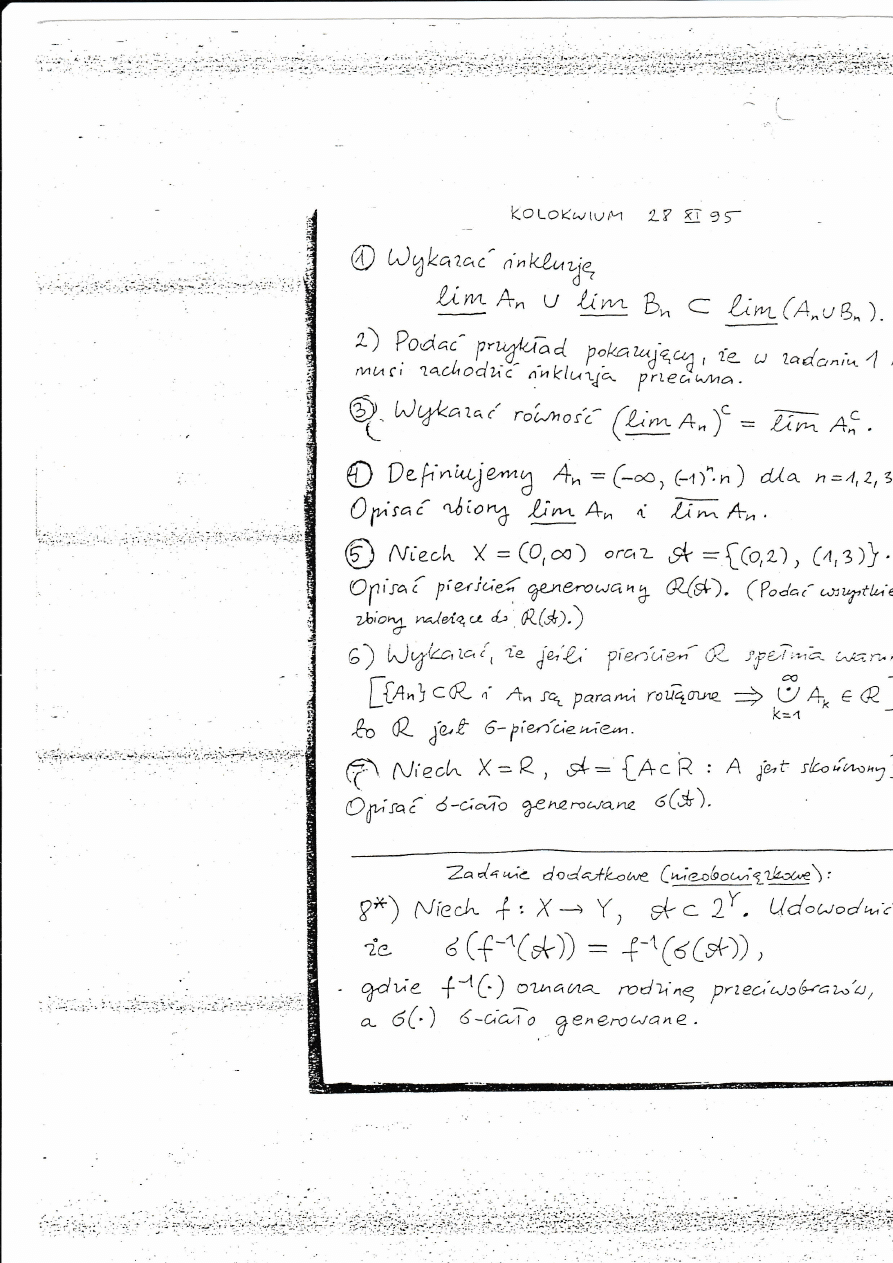 KOLOKWIUM 28 XI 95
① Wykazać inkluzję
lim Aₙ ∪ lim Bₙ ⊂ lim (Aₙ∪Bₙ).
2) Podać przykład pokazujący, że w zadaniu 1
musi zachodzić inkluzja przeciwna.
③ Wykazać równość (lim Aₙ)ᶜ = lim Aₙᶜ.
④ Definiujemy Aₙ = (-∞, (-1)ⁿ·n) dla n=1,2,3
Opisać zbiory lim Aₙ i lim Aₙ.
⑤ Niech X = (0,∞) oraz 𝒜 = {(0,2), (1,3)}.
Opisać pierścień generowany R(𝒜). (Podać wszystkie
zbiory należące do R(𝒜).)
6) Wykazać, że jeśli pierścień R spełnia
[{Aₙ}⊂R i Aₙ są parami rozłączne ⇒ ∞ ⨃ k=1 Aₖ ∈ R]
to R jest σ-pierścieniem.
⑦ Niech X=R, 𝒜 = {A⊂R : A jest skończony}
Opisać σ-ciało generowane σ(𝒜).
Zadanie dodatkowe (nieobowiązkowe):
8*) Niech f: X → Y, 𝒜 ⊂ 2ʸ. Udowodnić
że σ(f⁻¹(𝒜)) = f⁻¹(σ(𝒜)),
gdzie f⁻¹(·) oznacza rodzinę przeciwobrazów,
a σ(·) σ-ciało generowane.